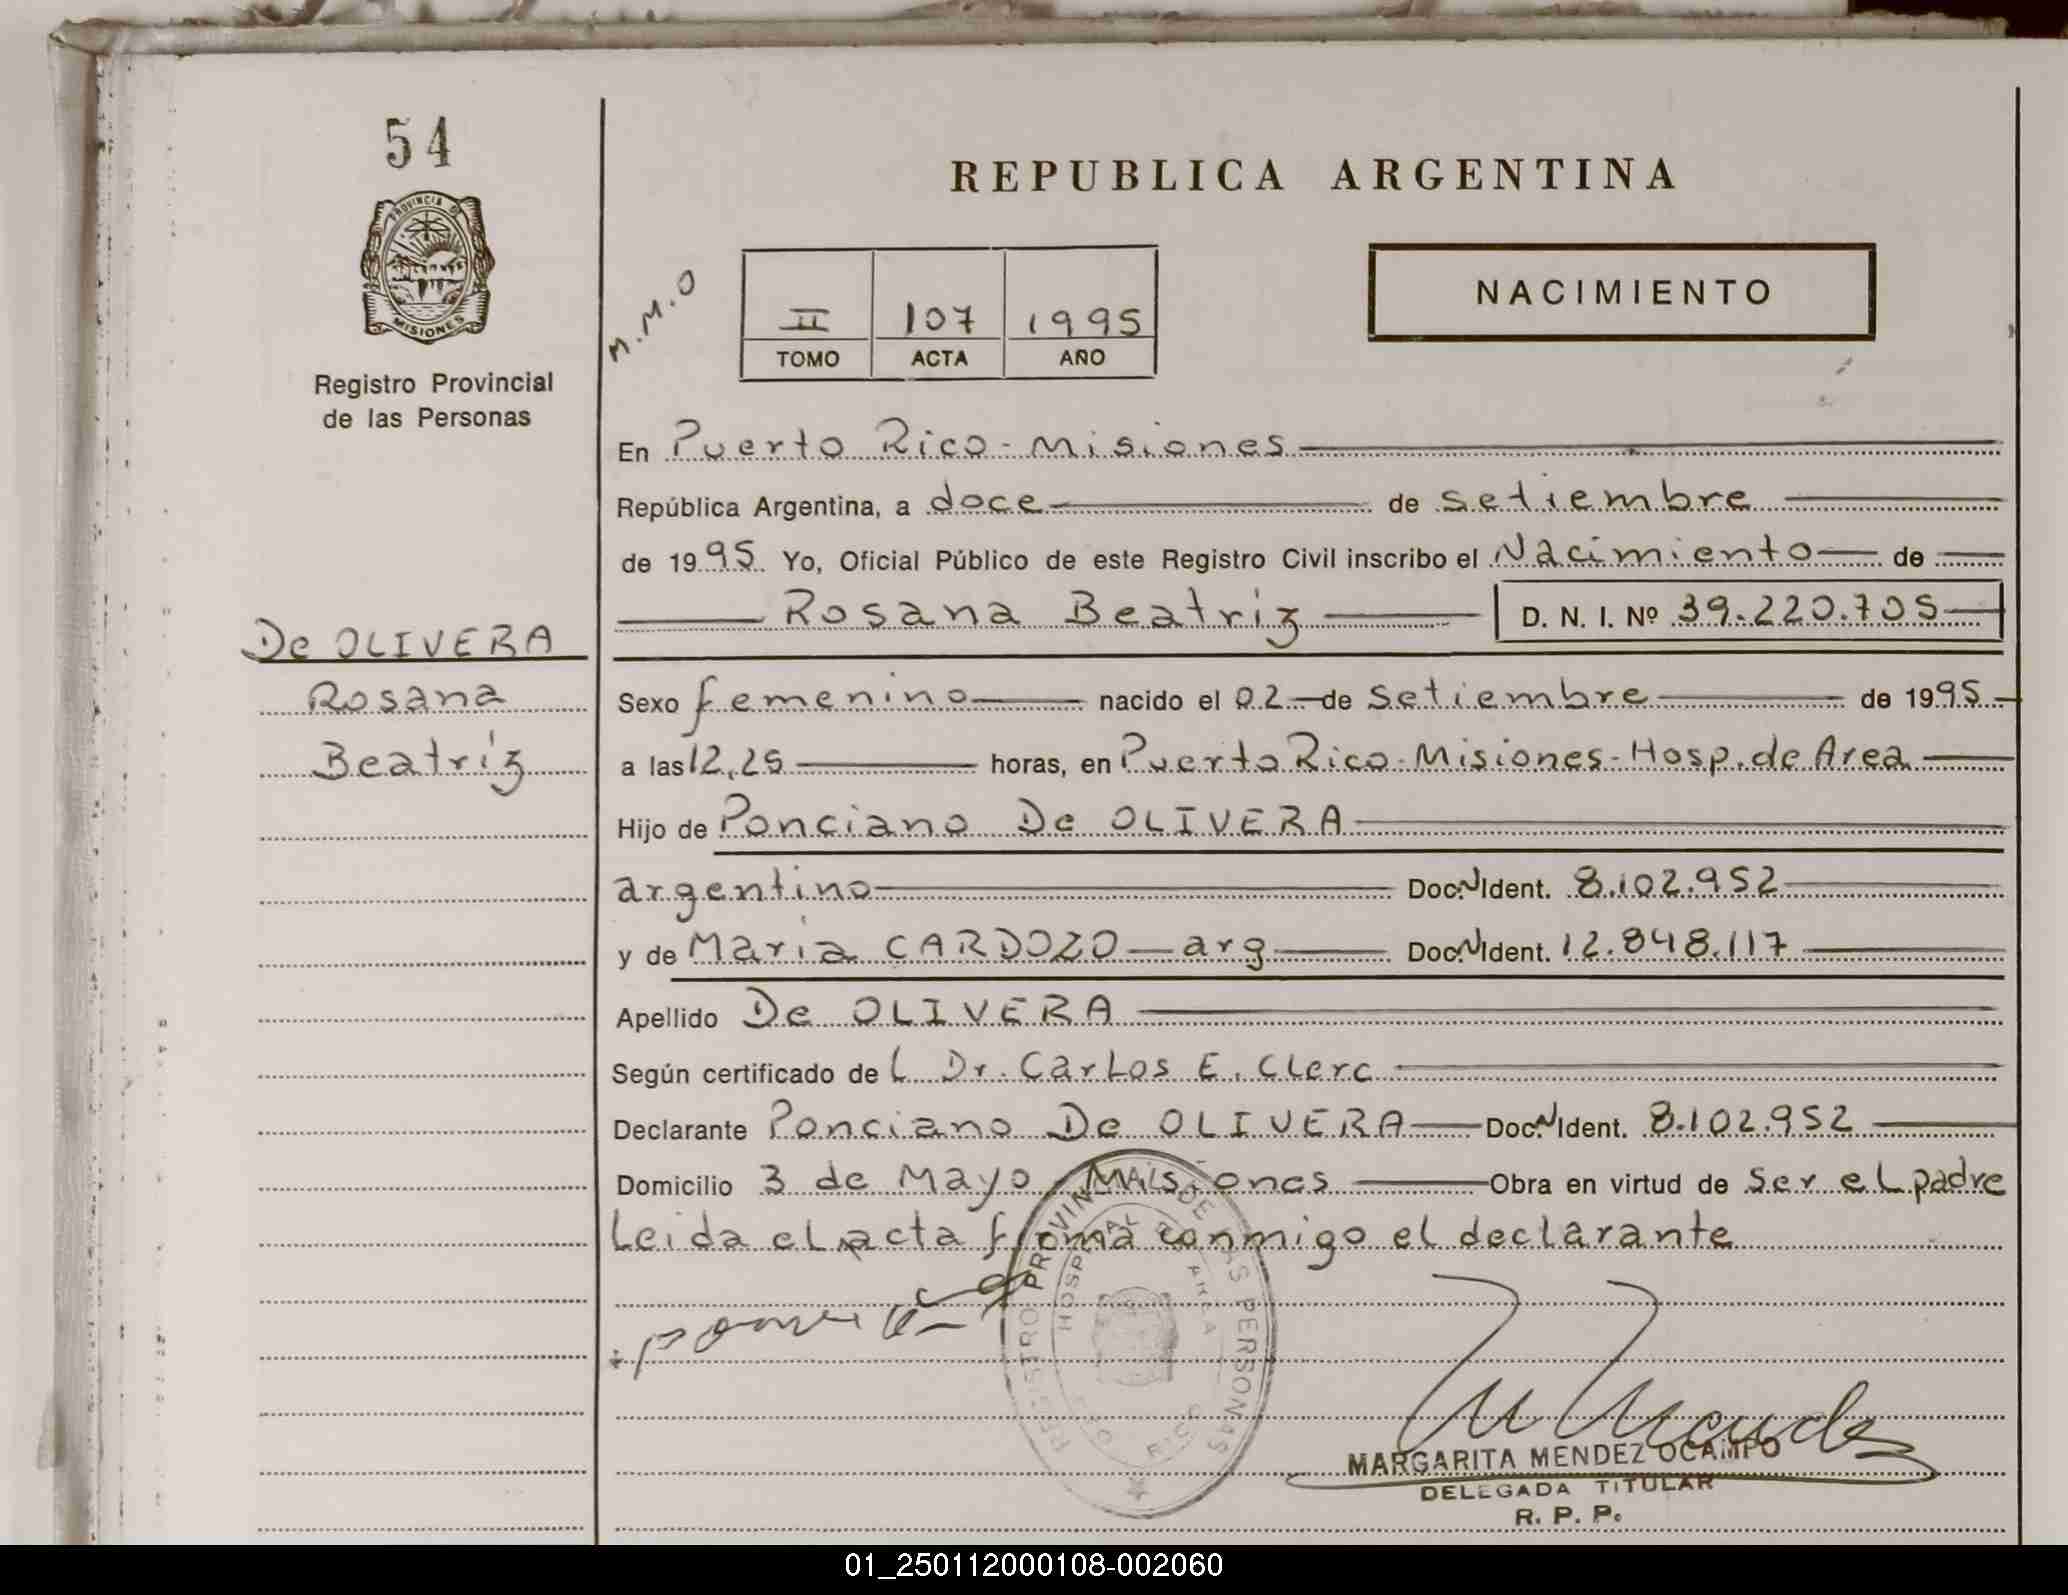 54
PROVINCIA DE
MISIONES
Registro Provincial
de las Personas
REPUBLICA ARGENTINA
M.M.O
II 107 1995
TOMO ACTA AÑO
NACIMIENTO
En Puerto Rico - Misiones
República Argentina, a doce de setiembre
de 1995 Yo, Oficial Público de este Registro Civil inscribo el Nacimiento de
Rosana Beatriz D. N. I. Nº 39.220.705
De OLIVERA
Rosana
Beatriz
Sexo femenino nacido el 02 de setiembre de 1995
a las 12,25 horas, en Puerto Rico - Misiones - Hosp. de Area
Hijo de Ponciano De OLIVERA
argentino Doc. N Ident. 8.102.952
y de Maria CARDOZO - arg Doc. N Ident. 12.848.117
Apellido De OLIVERA
Según certificado de L Dr. Carlos E. Clerc
Declarante Ponciano De OLIVERA Doc. N Ident. 8.102.952
Domicilio 3 de Mayo Misiones Obra en virtud de ser el padre
Leida el acta firma conmigo el declarante
REGISTRO PROVINCIAL DE LAS PERSONAS
HOSPITAL AREA
RICO
MARGARITA MENDEZ OCAMPO
DELEGADA TITULAR
R. P. P.
01_250112000108-002060